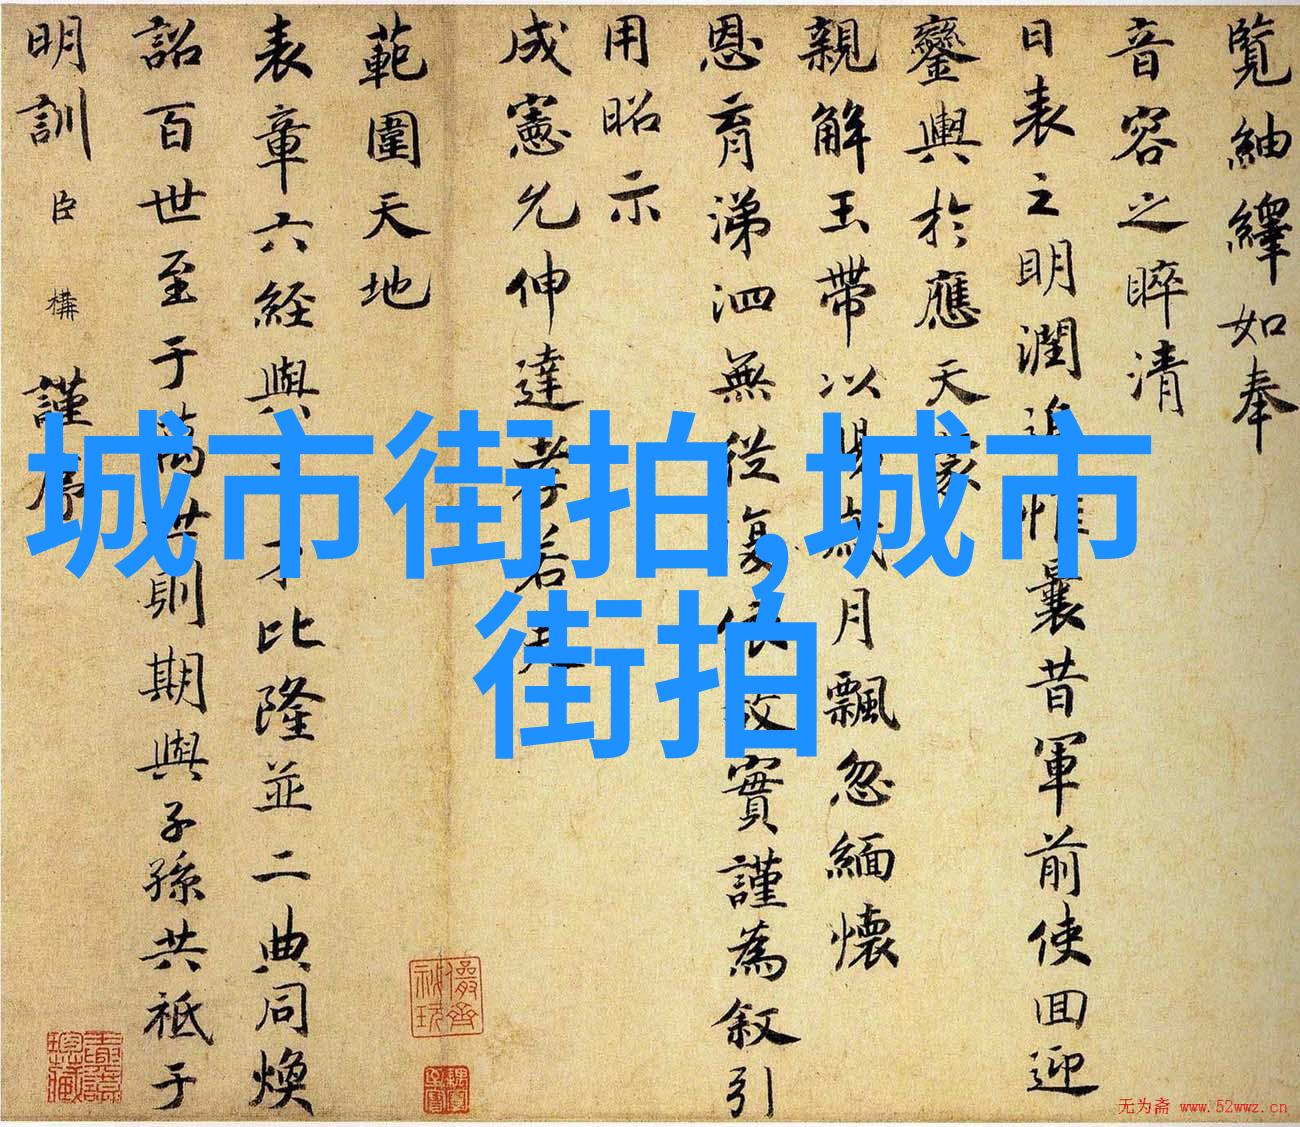 覽紬繹如奉
音容之睟清
日表之明潤追惟曩昔軍前使回迎
鑾輿於應天家
親解玉帶以賜歲月飄忽緬懷
恩育涕泗無從復依故實謹為叙引
用昭示
成憲允伸達孝若夫
範圍天地
表章六經與才比隆並二典同煥
詔百世至于萬世則期與子孫共祗于
明訓臣構謹序
城市街拍,城市
街拍
无为斋 www.52wwz.cn